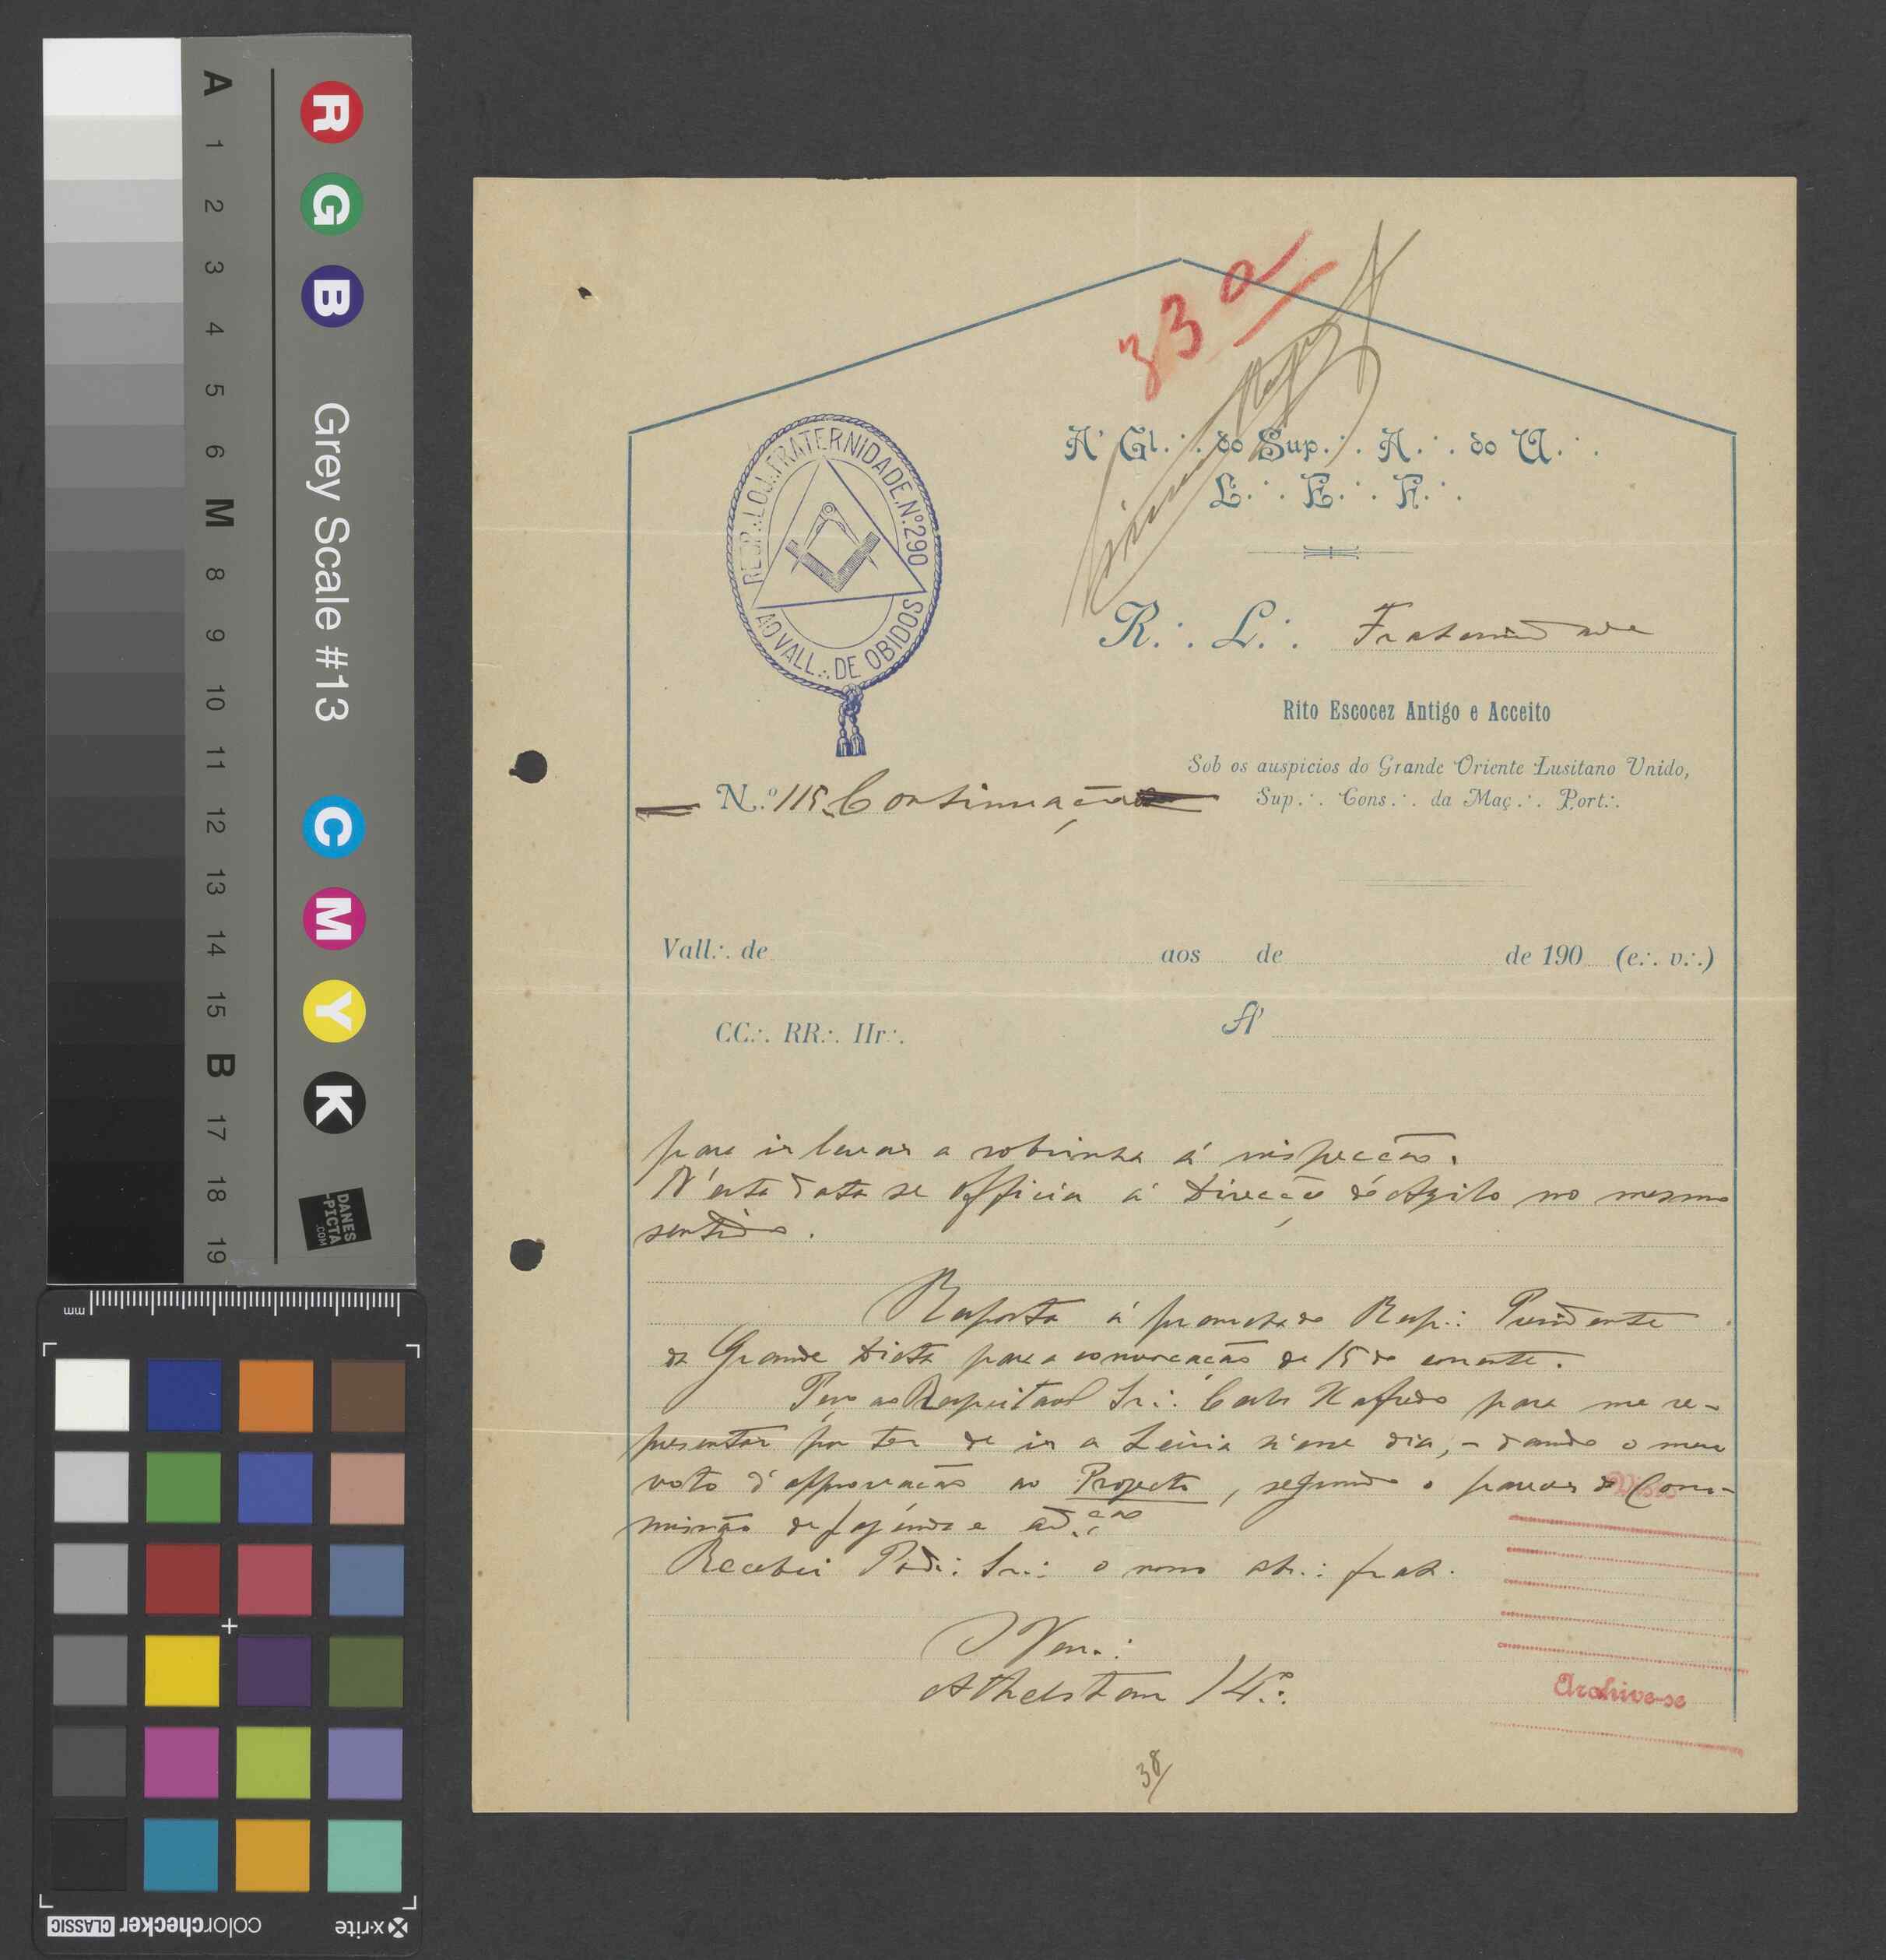 A
1
2
3
4
5
6
M
8
9
10
11
12
13
14
15
B
17
18
19
R G B
Grey Scale #13
C M Y K
DANES
-PICTA
.COM
mm
x-rite
colorchecker CLASSIC
33º
A' Gl.·. do Sup.·. A.·. do U.·.
L.·. E.·. F.·.
RESP.·. LOJ.·. FRATERNIDADE. Nº 290
AO VALL.·. DE OBIDOS
R.·. L.·. Fraternidade
Rito Escocez Antigo e Acceito
Sob os auspicios do Grande Oriente Lusitano Unido,
Sup.·. Cons.·. da Maç.·. Port.·.
N.º 115. Continuação
Vall.·. de aos de de 190 (e.·. v.·.)
CC.·. RR.·. IIr.·.
A'
para ir levar a sobrinha á inspecção.
N'esta data se officia á Direcção do Azilo no mesmo
sentido.
Resposta á prancha do Resp.·. Presidente
da Grande Dieta para a convocação de 15 do corrente.
Peço ao Respeitavel Ir.·. Carlos para me re-
presentar por ter de ir a Leiria n'esse dia, - dando o meu
voto d'approvação ao Projecto, segundo o parecer da Com-
missão de fazenda e ad.ção
Recebei Pod.·. Ir.·. o nosso abr.·. frat.
O Ven.·.
Athelstan 14.·.
Visto
Archive-se
38